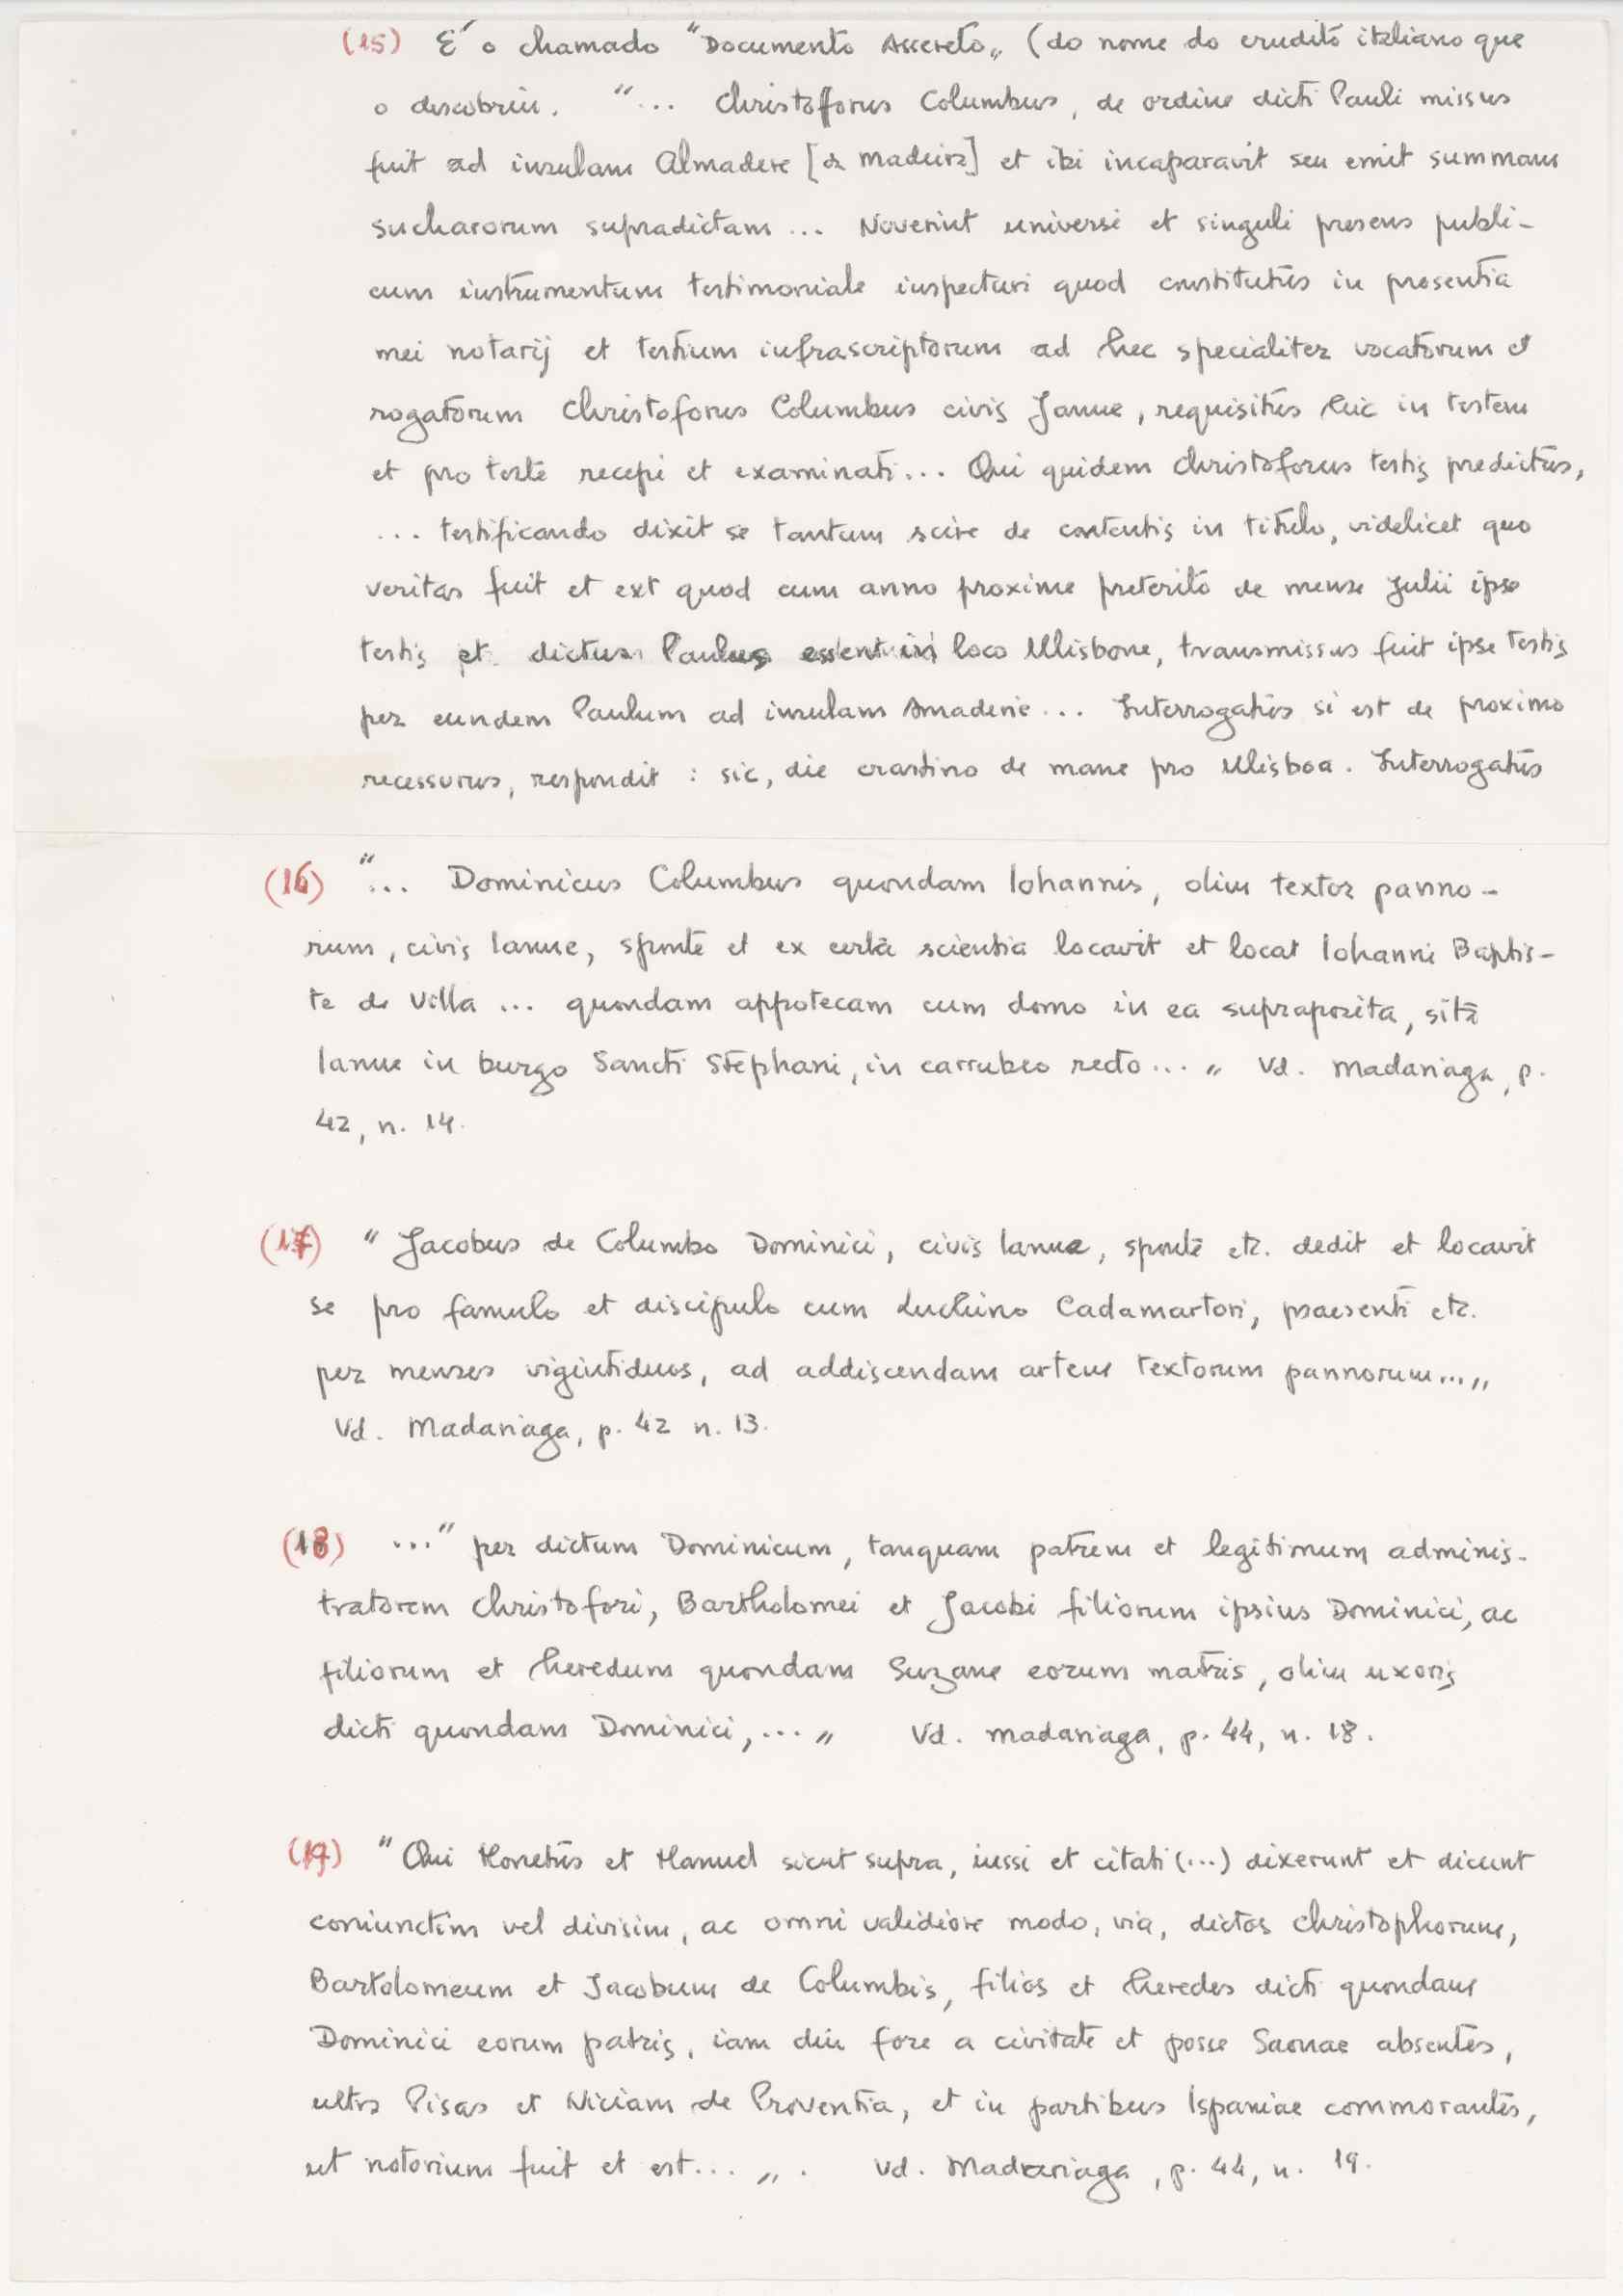 (15) É o chamado "Documento Assereto„ (do nome do erudito italiano que
o descobriu. "... Christofforus Columbus, de ordine dicti Pauli missus
fuit ad insulam Almadere [da Madeira] et ibi incaparavit seu emit summam
sucharorum supradictam ... Noverint universi et singuli presens publi-
cum instrumentum testimoniale inspecturi quod constitutus in presentia
mei notarij et testium infrascriptorum ad hec specialiter vocatorum et
rogatorum Christoforus Columbus civis Janue, requisitus huic in testem
et pro teste recepi et examinati... Qui quidem Christoforus testis predictus,
... testificando dixit se tantum scire de contentis in titulo, videlicet quo
veritas fuit et ext quod cum anno proxime preterito de mense Julii ipse
testis et dictus Paulus essent in loco Ulisbone, transmissus fuit ipse testis
per eundem Paulum ad insulam Amaderie... Interrogatus si est de proximo
recessurus, respondit : sic, die crastino de mane pro Ulisboa. Interrogatus
(16) "... Dominicus Columbus quondam Iohannis, olim textor panno-
rum, civis Ianue, sponte et ex certa scientia locavit et locat Iohanni Baptis-
te de Villa ... quondam appotecam cum domo in ea supraposita, sita
Ianue in burgo Sancti Stephani, in carrubeo recto... „ Vd. Madariaga, p.
42, n. 14.
(17) " Jacobus de Columbo Dominici, civis Ianua, sponte etc. dedit et locavit
se pro famulo et discipulo cum Luchino Cadamartori, praesenti etc.
per menses vigintiduos, ad addiscendam artem textorum pannorum...„
Vd. Madariaga, p. 42 n. 13.
(18) ..." per dictum Dominicum, tanquam patrem et legitimum adminis-
tratorem Christofori, Bartholomei et Jacobi filiorum ipsius Dominici, ac
filiorum et heredum quondam Suzane eorum matris, olim uxoris
dicti quondam Dominici, ... „ Vd. Madariaga, p. 44, n. 18.
(19) " Qui Monetus et Manuel sicut supra, iussi et citati (...) dixerunt et dicunt
coniunctim vel divisim, ac omni validiore modo, via, dictos Christophorum,
Bartolomeum et Jacobum de Columbis, filios et heredes dicti quondam
Dominici eorum patris, iam diu fore a civitate et posse Saonae absentes,
ultra Pisas et Niciam de Proventia, et in partibus Ispaniae commorantes,
ut notorium fuit et est... „ . Vd. Madariaga, p. 44, n. 19.